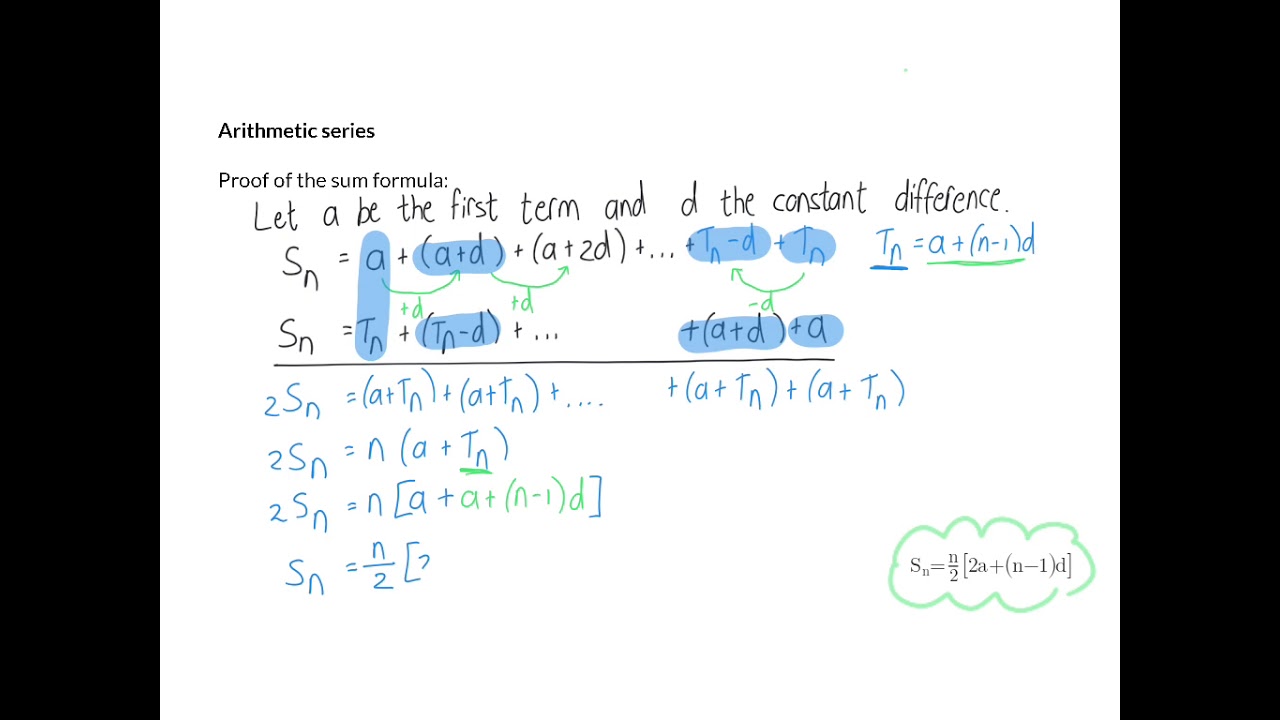 Arithmetic series
Proof of the sum formula:
Let a be the first term and d the constant difference.
Sₙ = a + (a+d) + (a+2d) + ... + Tₙ-d + Tₙ
Tₙ = a+(n-1)d
+d +d -d
Sₙ = Tₙ + (Tₙ-d) + ... +(a+d)+a
2Sₙ = (a+Tₙ)+(a+Tₙ)+.... +(a+Tₙ)+(a+Tₙ)
2Sₙ = n (a + Tₙ)
2Sₙ = n [a + a+(n-1)d]
Sₙ = n/2 [
Sₙ=n/2[2a+(n−1)d]